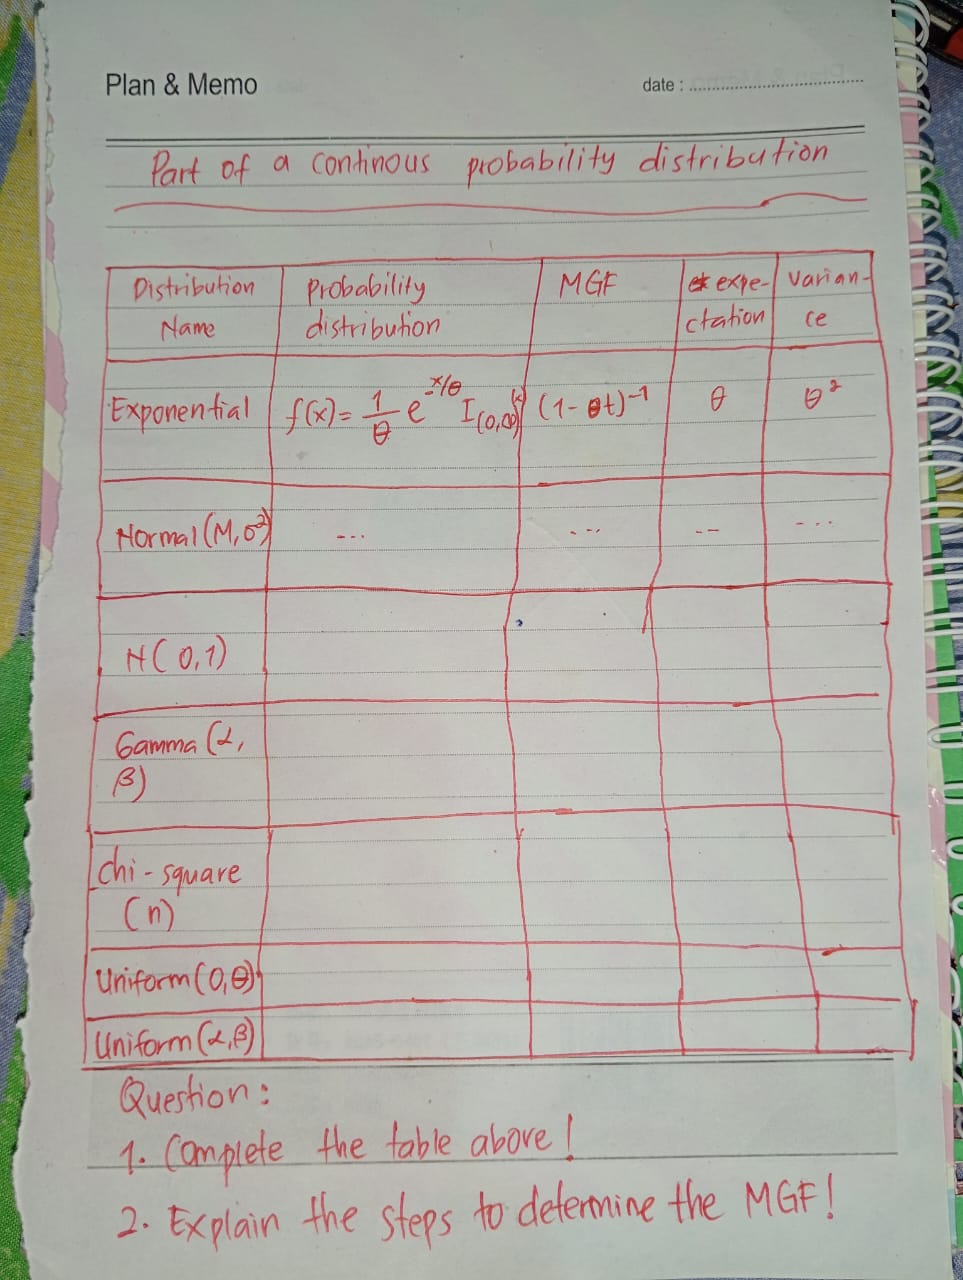 Plan & Memo
date : ........................
Part of a continous probability distribution
Distribution Name | Probability distribution | MGF | expe-ctation | varian-ce
Exponential | f(x) = 1/θ e^-x/θ I(0,∞)(x) | (1-θt)^-1 | θ | θ²
Normal (M, σ²) | ... | ... | -- | ...
N(0,1)
Gamma (α, β)
Chi-square (n)
Uniform (0,θ)
Uniform (α,β)
Question :
1. Complete the table above !
2. Explain the steps to determine the MGF!